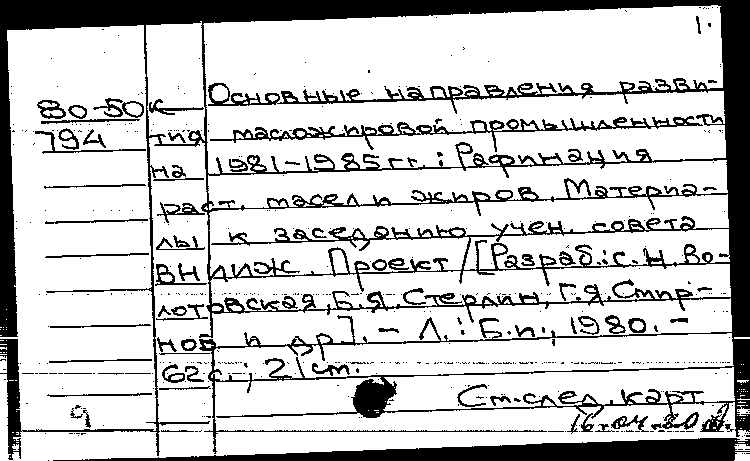 1.
80-50к Основные направления разви-
794 тия масложировой промышленности
на 1981-1985 гг.: Рафинация
раст. масел и жиров. Материа-
лы к заседанию учен. совета
ВНИИЖ. Проект / [Разраб.: С.Н. Во-
лотовская, Б.Я. Стерлин, Г.Я. Смир-
нов и др.]. - Л.: Б.и., 1980. -
62 с.; 21 см.
См. след. карт.
9 16.04.80